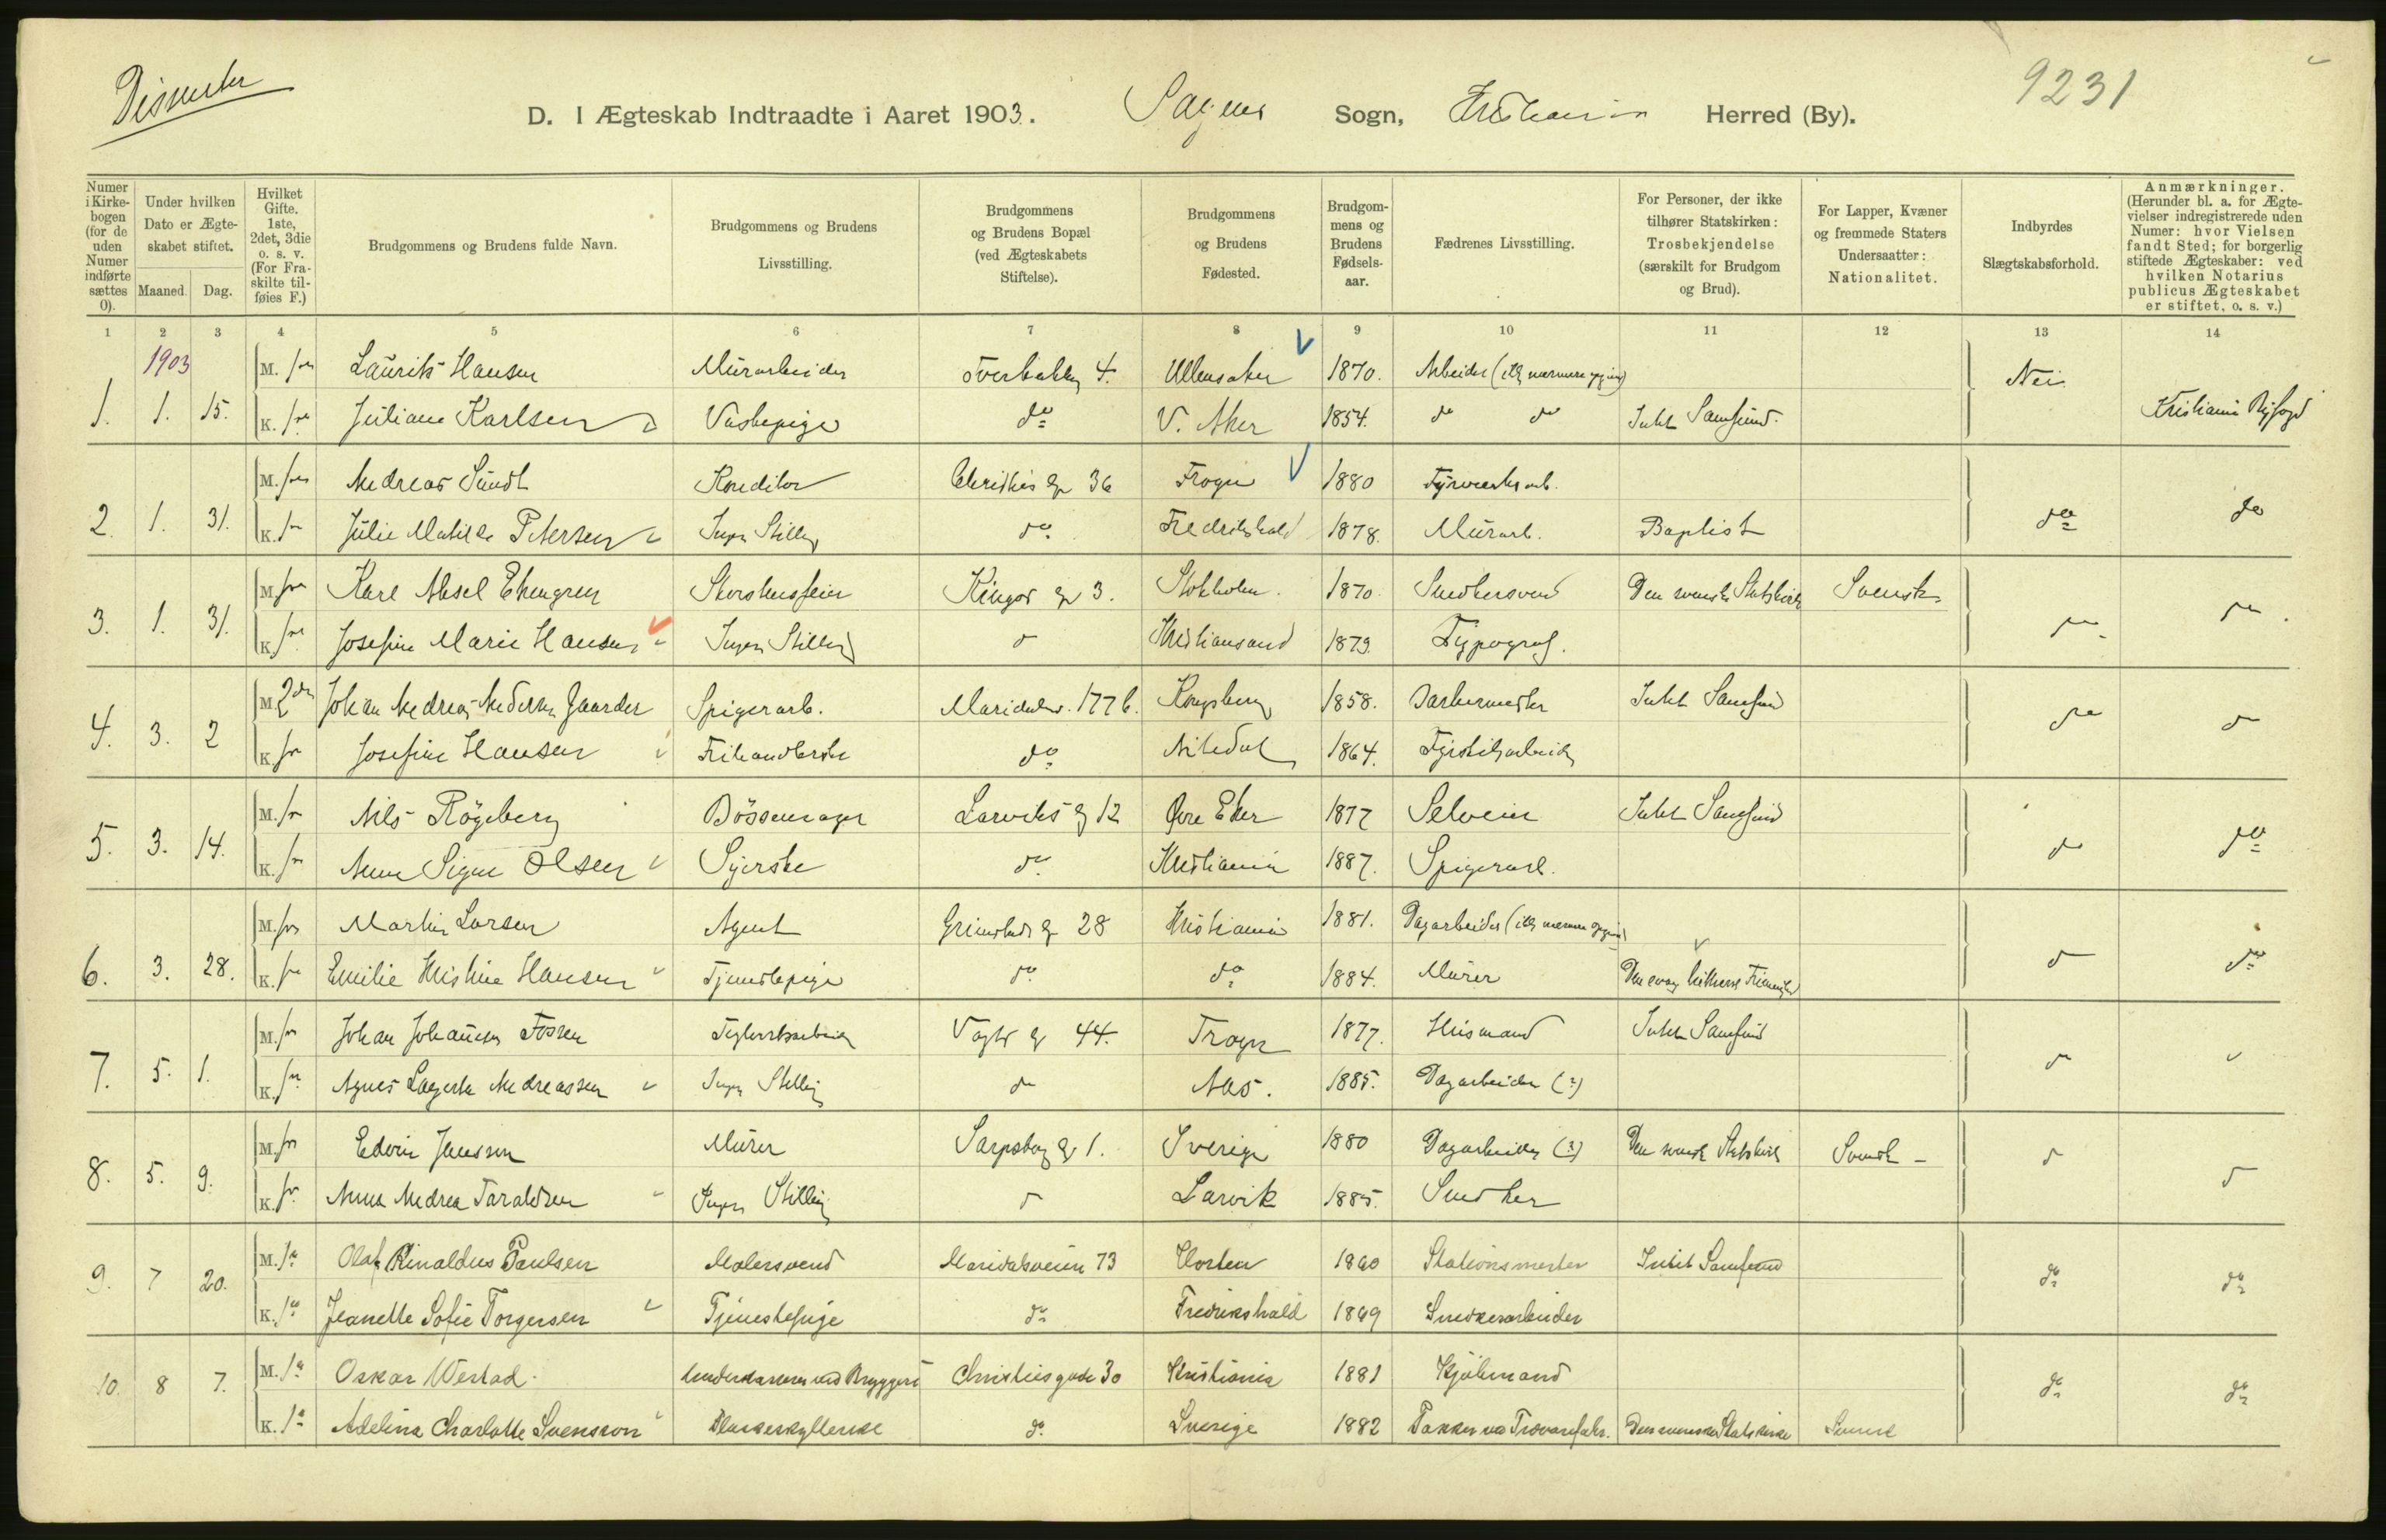 Dissenter
9231
D. I Ægteskab Indtraadte i Aaret 1903. Sagenes Sogn, Kristiania Herred (By).
Numer i Kirkebogen (for de uden Numer indførte sættes 0).
Under hvilken Dato er Ægteskabet stiftet.
Maaned. Dag.
Hvilket Gifte. 1ste, 2det, 3die o. s. v. (For Fraskilte tilføies F.)
Brudgommens og Brudens fulde Navn.
Brudgommens og Brudens Livsstilling.
Brudgommens og Brudens Bopæl (ved Ægteskabets Stiftelse).
Brudgommens og Brudens Fødested.
Brudgommens og Brudens Fødselsaar.
Fædrenes Livsstilling.
For Personer, der ikke tilhører Statskirken: Trosbekjendelse (særskilt for Brudgom og Brud).
For Lapper, Kvæner og fremmede Staters Undersaatter: Nationalitet.
Indbyrdes Slægtskabsforhold.
Anmærkninger. (Herunder bl. a. for Ægtevielser indregistrerede uden Numer: hvor Vielsen fandt Sted; for borgerlig stiftede Ægteskaber: ved hvilken Notarius publicus Ægteskabet er stiftet, o. s. v.)
1 2 3 4 5 6 7 8 9 10 11 12 13 14
1903
M. Laurits Hansen Murarbeider 4. Ullensaker 1870. Arbeider (ikke nærmere opgivet) Nei
1. 1. 15. K. Juliane Karlsen Vaskepige do V. Aker 1854. do do Intet Samfund. Kristiania Byfogd
M. Andreas Sundt Konditor Christies g 36 Frogn 1880
2. 1. 31. K. Julie Matilde Petersen Ingen Stilling do Fredrikshald 1878. Murarb. Baptist do do
M. Karl Aksel Ekengren Skorstensfeier Ringos g 3. Stokholm. 1870 Snedkersvend Den svenske Statskirke Svensk
3. 1. 31. K. Josefine Marie Hansen Ingen Stilling d Kristiansand 1879. Typograf. do do
M. 2den Johan Andreas Andersen Gaarder Spigerarb. Maridalsv. 177 b. Kongsberg 1858. Garvermester Intet Samfund
4. 3. 2 K. Josefine Hansen Frihandlerske do Nitedal 1864. Fyrstikarbeider do do
M. Nils Rögeberg Bössemager Larviks g 12 Øvre Eker 1877 Selveier Intet Samfund
5. 3. 14. K. Anna Signe Olsen Syerske do Kristiania 1887. Spigerarb. do do
M. Martin Larsen Agent Grimstads g 28 Kristiania 1881. Dagarbeider (ikke nærmere opgivet)
6. 3. 28. K. Emilie Kristine Hansen Tjenestepige do do 1884. Murer Den evang. lutherske Frimenighed do do
M. Johan Johansen Fossen Teglverksarbeider Vogts g 44. Frogn 1877. Husmand Intet Samfund
7. 5. 1. K. Agnes Lagerta Andreassen Ingen Stilling do Aas. 1885. Dagarbeider (?) do
M. Edvin Jansson Murer Sarpsborg g 1. Sverige 1880 Dagarbeider (?) Den svensk Statskirk Svensk
8. 5. 9. K. Anna Andrea Taraldsen Ingen Stilling d Larvik 1885. Snedker d d
M. 1ste Olaf Rinaldus Paulsen Malersvend Maridalsveien 73 Horten 1860 Stationsmester Intet Samfund
9. 7 20. K. 1ste Jeanette Sofie Torgersen Tjenestepige do Fredrikshald 1869 Snedkerarbeider do do
M. 1ste Oskar Westad. ved Bryggeri Christiesgade 30 Kristiania 1881 Kjölmand
10. 8 7. K. 1ste Adelina Charlotte Svensson Flaskeskyllerske do Sverige 1882 Pakker ved Trævarefabr. Den svenske Statskirke Svensk do do